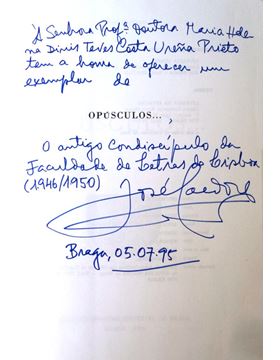 À Senhora Prof.ª Doutora Maria Hele
na Dinis Teves Costa Ureña Prieto
tem a honra de oferecer um
exemplar de
OPÚSCULOS...,
O antigo condiscípulo da
Faculdade de Letras de Lisboa
(1946/1950)
José
Braga, 05.07.95